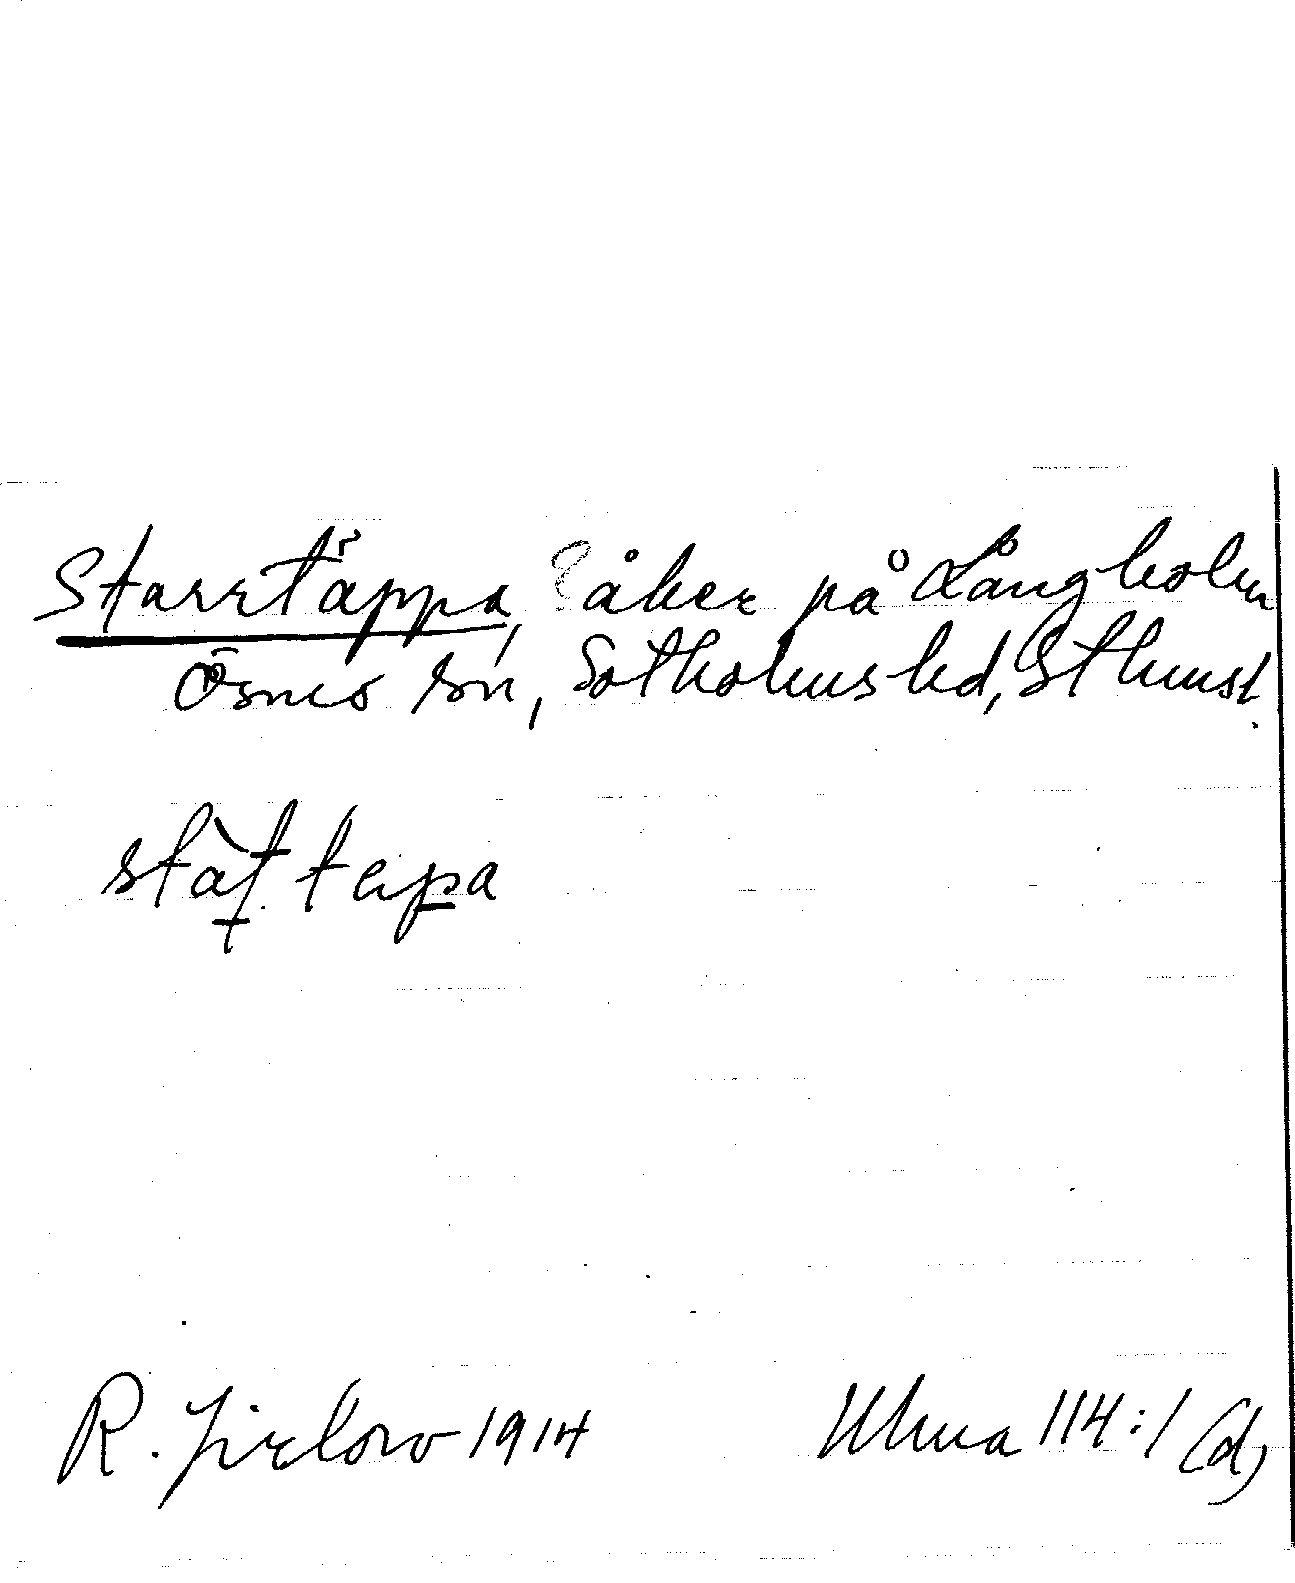 Starrtäppa, ? åker på Långholm
Ösmo sn, Sotholms hd, Sthmsl.
stàt tepa
R. Jirlow 1914
Ulma 114:1 (d)